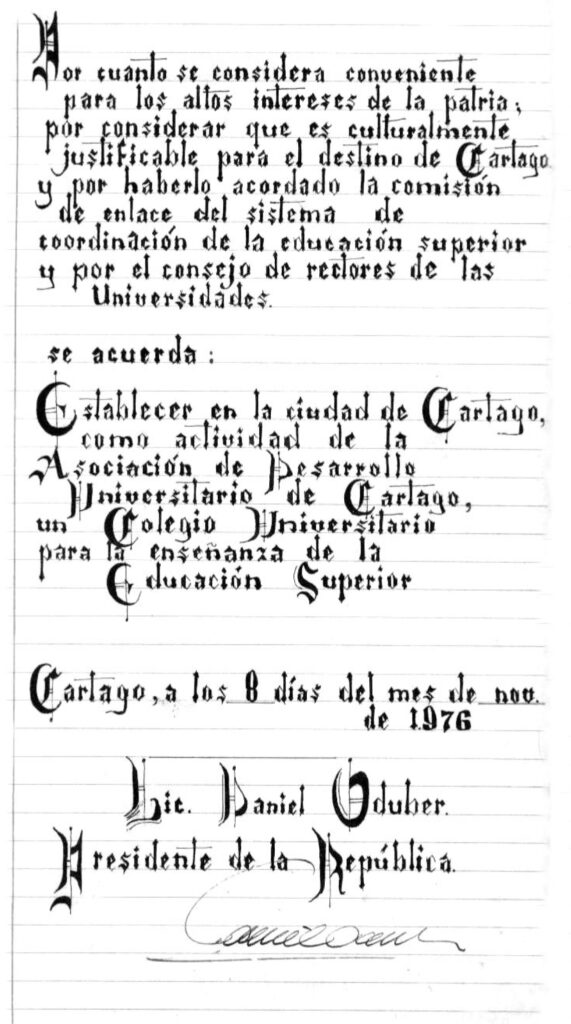 Por cuanto se considera conveniente
para los altos intereses de la patria;
por considerar que es culturalmente
justificable para el destino de Cartago
y por haberlo acordado la comisión
de enlace del sistema de
coordinación de la educación superior
y por el consejo de rectores de las
Universidades.
se acuerda:
Establecer en la ciudad de Cartago,
como actividad de la
Asociación de Desarrollo
Universitario de Cartago,
un Colegio Universitario
para la enseñanza de la
Educación Superior
Cartago, a los 8 días del mes de nov.
de 1976
Lic. Daniel Oduber.
Presidente de la República.